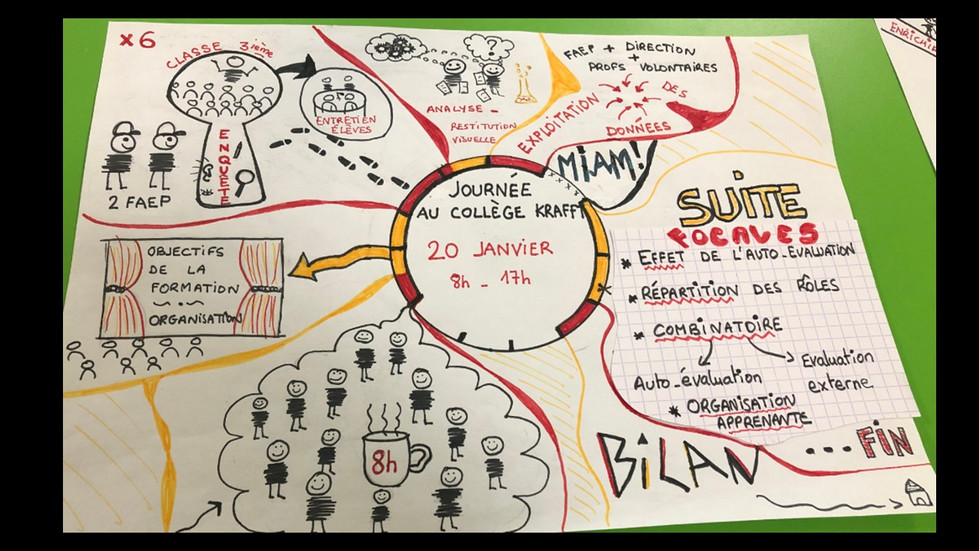 x6
CLASSE 3ième
ENTRETIEN
ÉLÈVES
ENQUÊTE
2 FAEP
?
ANALYSE -
RESTITUTION
VISUELLE
FAEP + DIRECTION
+
PROFS VOLONTAIRES
EXPLOITATION
DES
DONNÉES
MIAM!
ENRICHIE
JOURNÉE
AU COLLÈGE KRAFFT
20 JANVIER
8h - 17h
OBJECTIFS
DE LA
FORMATION
ORGANISATION
8h
SUITE
FOCALES
* EFFET DE L'AUTO-ÉVALUATION
* RÉPARTITION DES RÔLES
* COMBINATOIRE
Auto-évaluation
Evaluation
externe
* ORGANISATION
APPRENANTE
BiLAN
... FiN